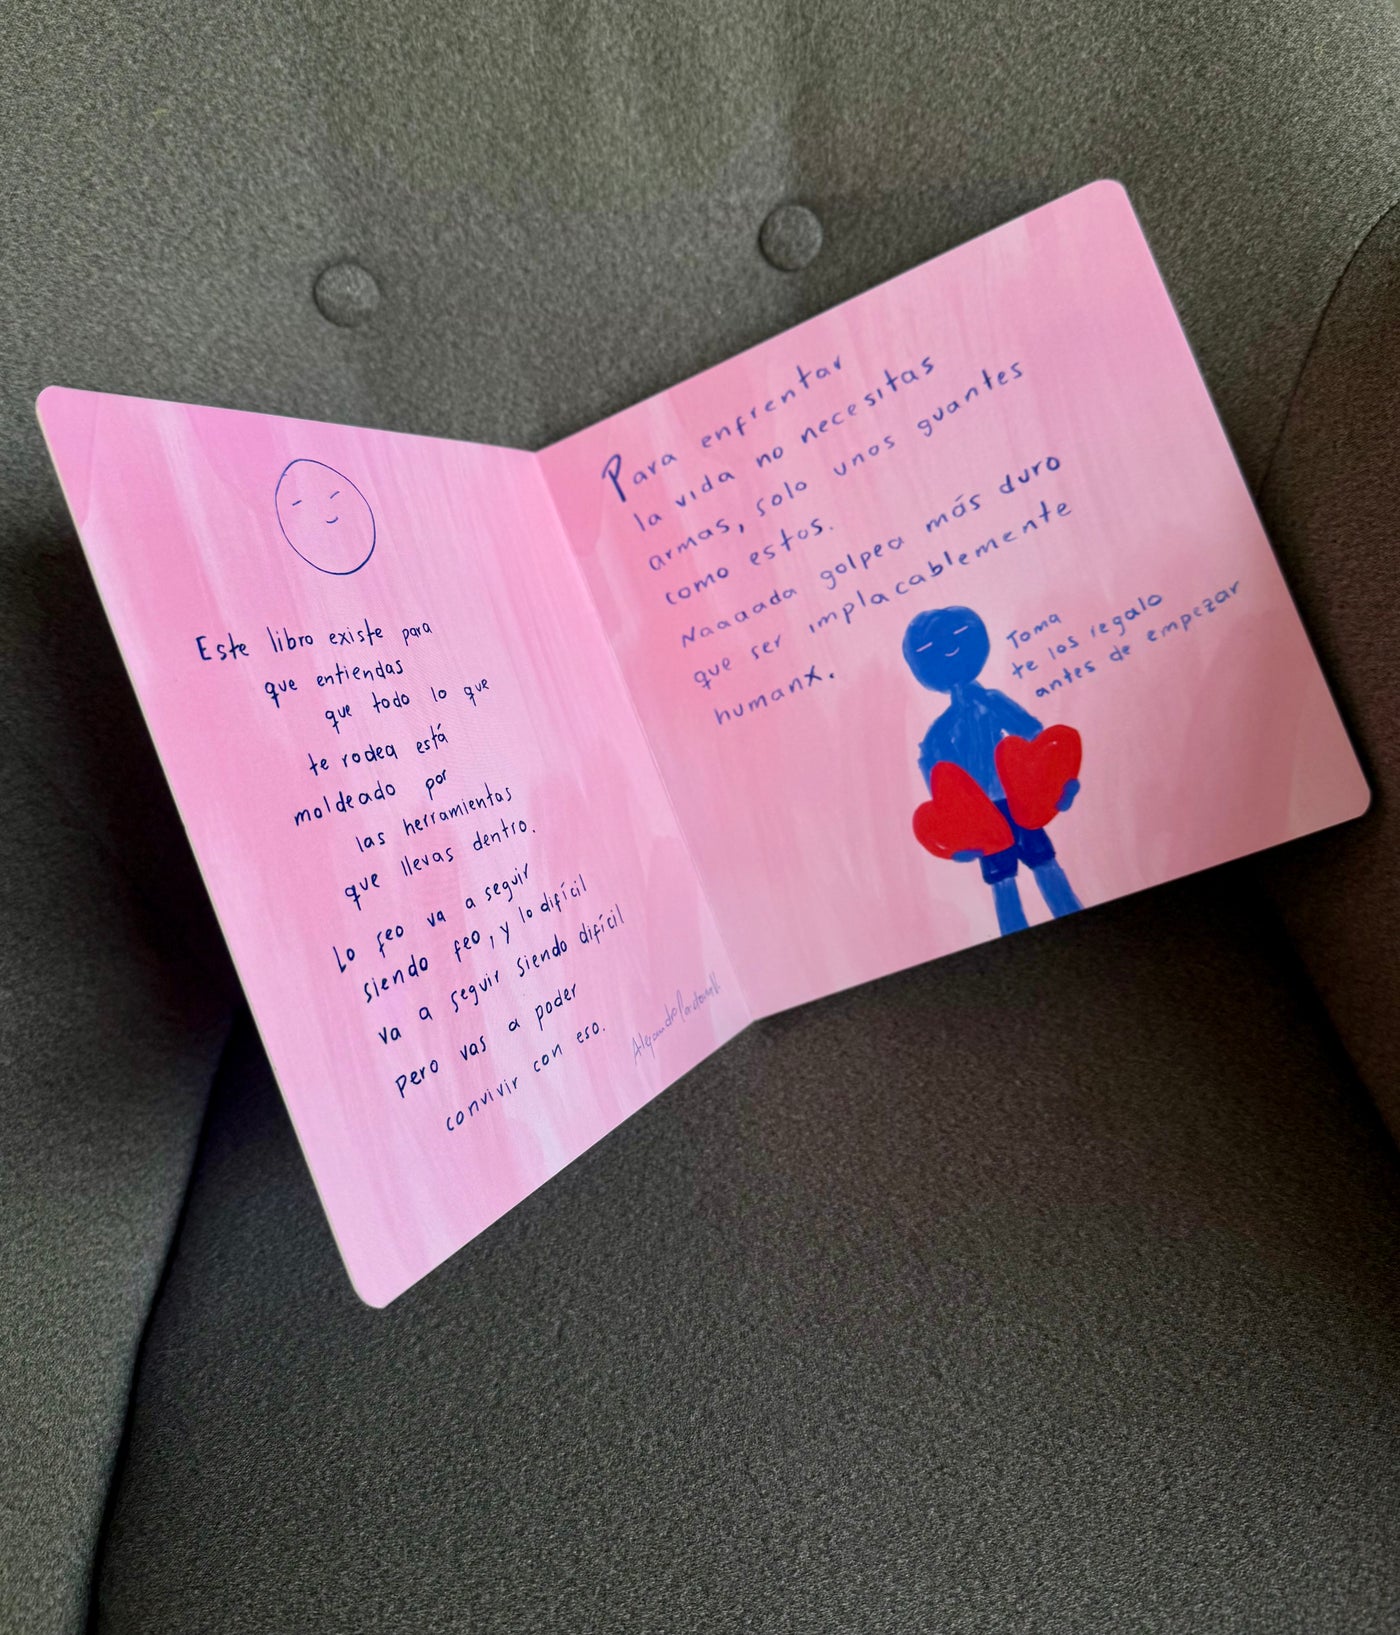 Este libro existe para
que entiendas
que todo lo que
te rodea está
moldeado por
las herramientas
que llevas dentro.
Lo feo va a seguir
siendo feo, y lo difícil
va a seguir siendo difícil
pero vas a poder
convivir con eso.
Para enfrentar
la vida no necesitas
armas, solo unos guantes
como estos.
Naaaada golpea más duro
que ser implacablemente
humanx.
Toma
te los regalo
antes de empezar